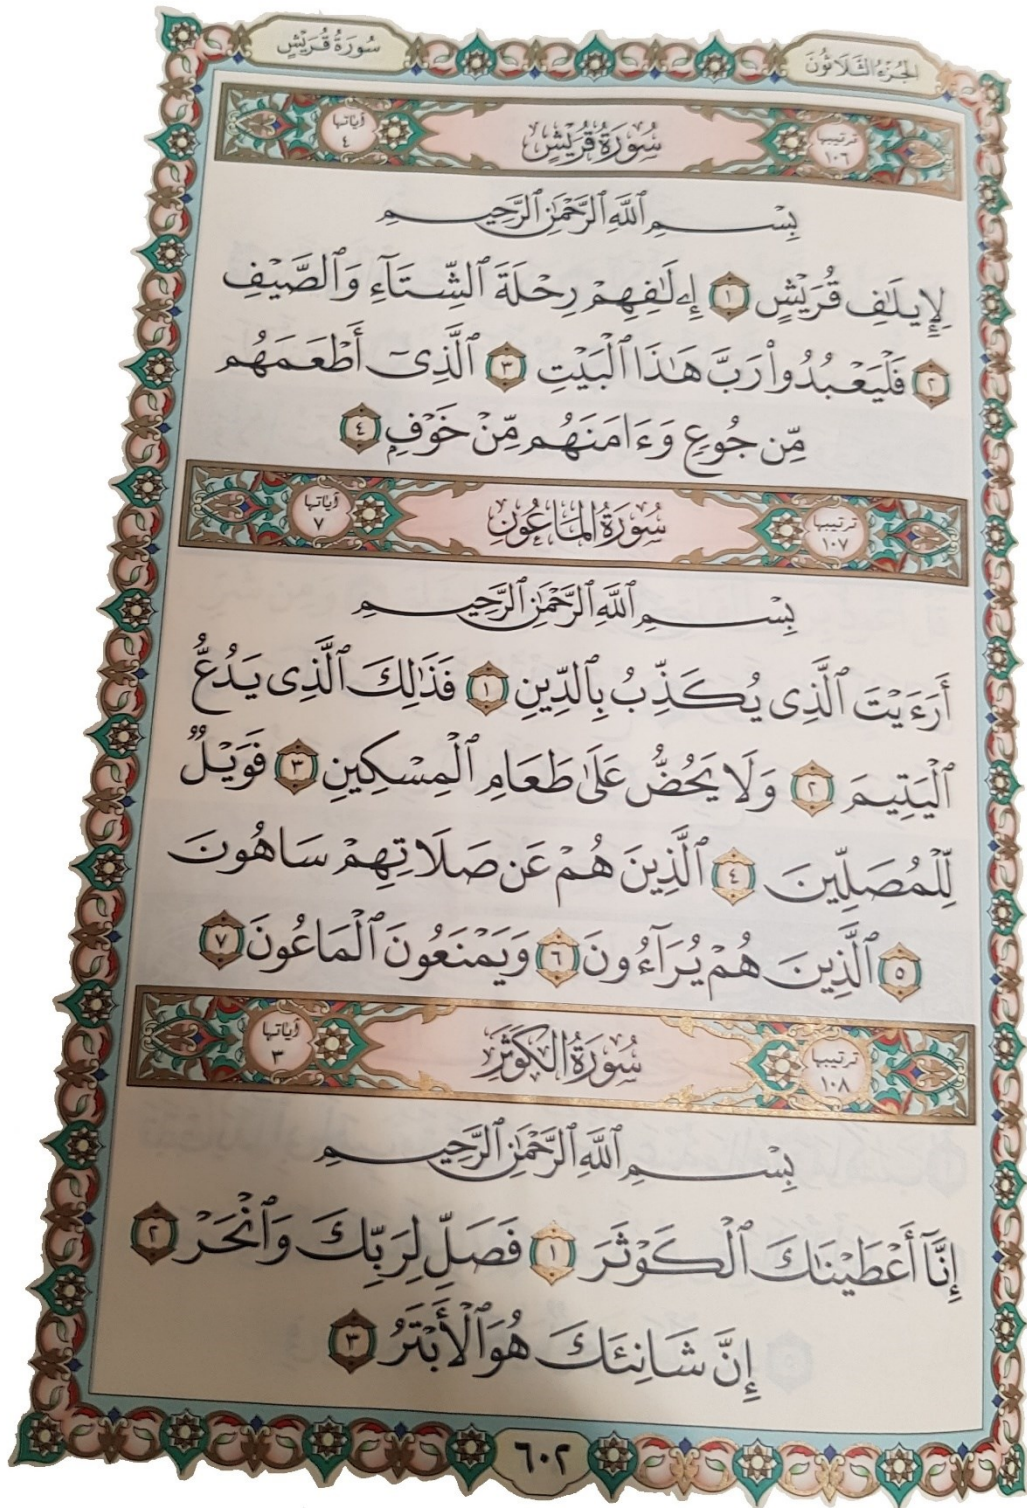 الجُزْءُ الثَّلَاثُونَ
سُورَةُ قُرَيْشٍ
ترتيبها ١٠٦
سُورَةُ قُرَيْشٍ
آياتها ٤
بِسْمِ ٱللَّهِ ٱلرَّحْمَٰنِ ٱلرَّحِيمِ
لِإِيلَٰفِ قُرَيْشٍ ١ إِۦلَٰفِهِمْ رِحْلَةَ ٱلشِّتَآءِ وَٱلصَّيْفِ
٢ فَلْيَعْبُدُوا۟ رَبَّ هَٰذَا ٱلْبَيْتِ ٣ ٱلَّذِىٓ أَطْعَمَهُم
مِّن جُوعٍ وَءَامَنَهُم مِّنْ خَوْفٍۭ ٤
ترتيبها ١٠٧
سُورَةُ المَاعُونِ
آياتها ٧
بِسْمِ ٱللَّهِ ٱلرَّحْمَٰنِ ٱلرَّحِيمِ
أَرَءَيْتَ ٱلَّذِى يُكَذِّبُ بِٱلدِّينِ ١ فَذَٰلِكَ ٱلَّذِى يَدُعُّ
ٱلْيَتِيمَ ٢ وَلَا يَحُضُّ عَلَىٰ طَعَامِ ٱلْمِسْكِينِ ٣ فَوَيْلٌ
لِّلْمُصَلِّينَ ٤ ٱلَّذِينَ هُمْ عَن صَلَاتِهِمْ سَاهُونَ
٥ ٱلَّذِينَ هُمْ يُرَآءُونَ ٦ وَيَمْنَعُونَ ٱلْمَاعُونَ ٧
ترتيبها ١٠٨
سُورَةُ الكَوْثَرِ
آياتها ٣
بِسْمِ ٱللَّهِ ٱلرَّحْمَٰنِ ٱلرَّحِيمِ
إِنَّآ أَعْطَيْنَٰكَ ٱلْكَوْثَرَ ١ فَصَلِّ لِرَبِّكَ وَٱنْحَرْ ٢
إِنَّ شَانِئَكَ هُوَ ٱلْأَبْتَرُ ٣
٦٠٢